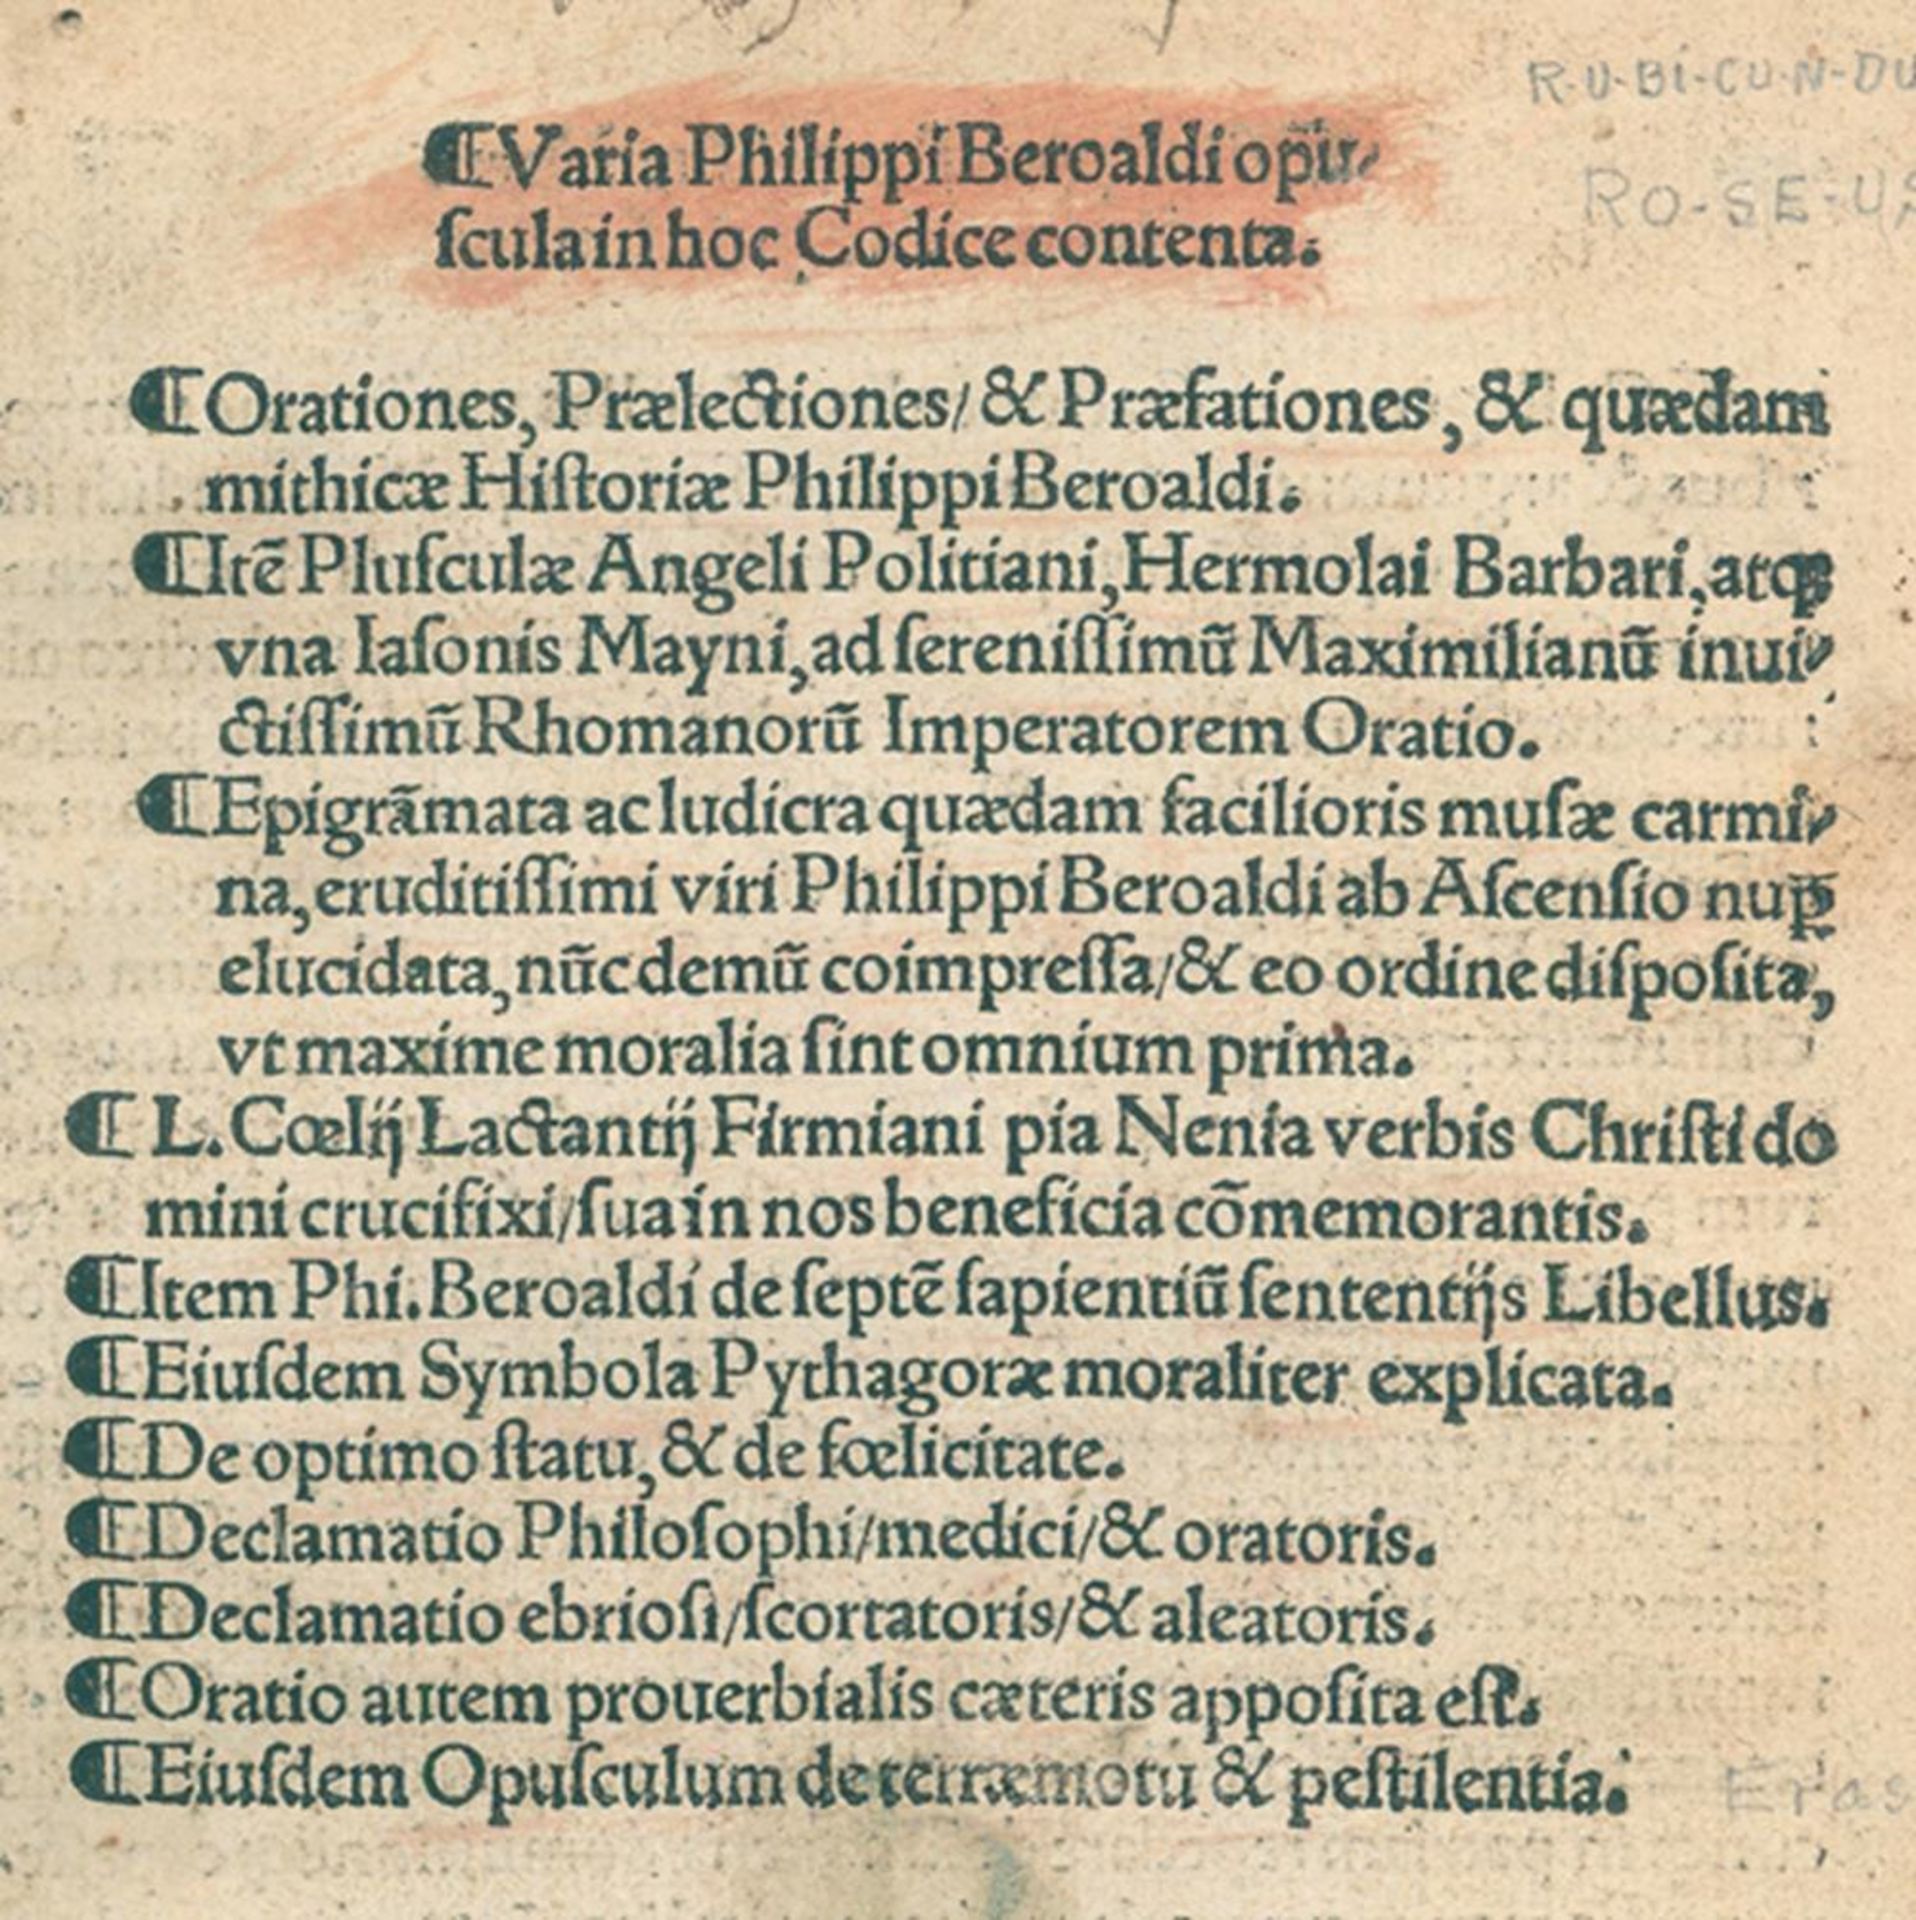 R-U-BI-CU-N-DU
RO-SE-US
¶Varia Philippi Beroaldi opu⸗
ſcula in hoc Codice contenta.
¶Orationes, Prælectiones/ & Præfationes, & quædam
mithicæ Hiſtoriæ Philippi Beroaldi.
¶Itē Pluſculæ Angeli Politiani, Hermolai Barbari, atqꝫ
vna Iaſonis Mayni, ad ſereniſſimū Maximilianū inui⸗
ctiſſimū Rhomanorū Imperatorem Oratio.
¶Epigrāmata ac ludicra quædam facilioris muſæ carmi⸗
na, eruditiſſimi viri Philippi Beroaldi ab Aſcenſio nuꝑ
elucidata, nūc demū coimpreſſa/ & eo ordine diſpoſita,
vt maxime moralia ſint omnium prima.
¶L. Cœlij Lactantij Firmiani pia Nenia verbis Chriſti do
mini crucifixi/ ſua in nos beneficia cōmemorantis.
¶Item Phi. Beroaldi de ſeptē ſapientiū ſententijs Libellus.
¶Eiuſdem Symbola Pythagoræ moraliter explicata.
¶De optimo ſtatu, & de fœlicitate.
¶Declamatio Philoſophi/ medici/ & oratoris.
¶Declamatio ebrioſi/ ſcortatoris/ & aleatoris.
¶Oratio autem prouerbialis cæteris appoſita eſt.
¶Eiuſdem Opuſculum de terræmotu & peſtilentia.
Eras